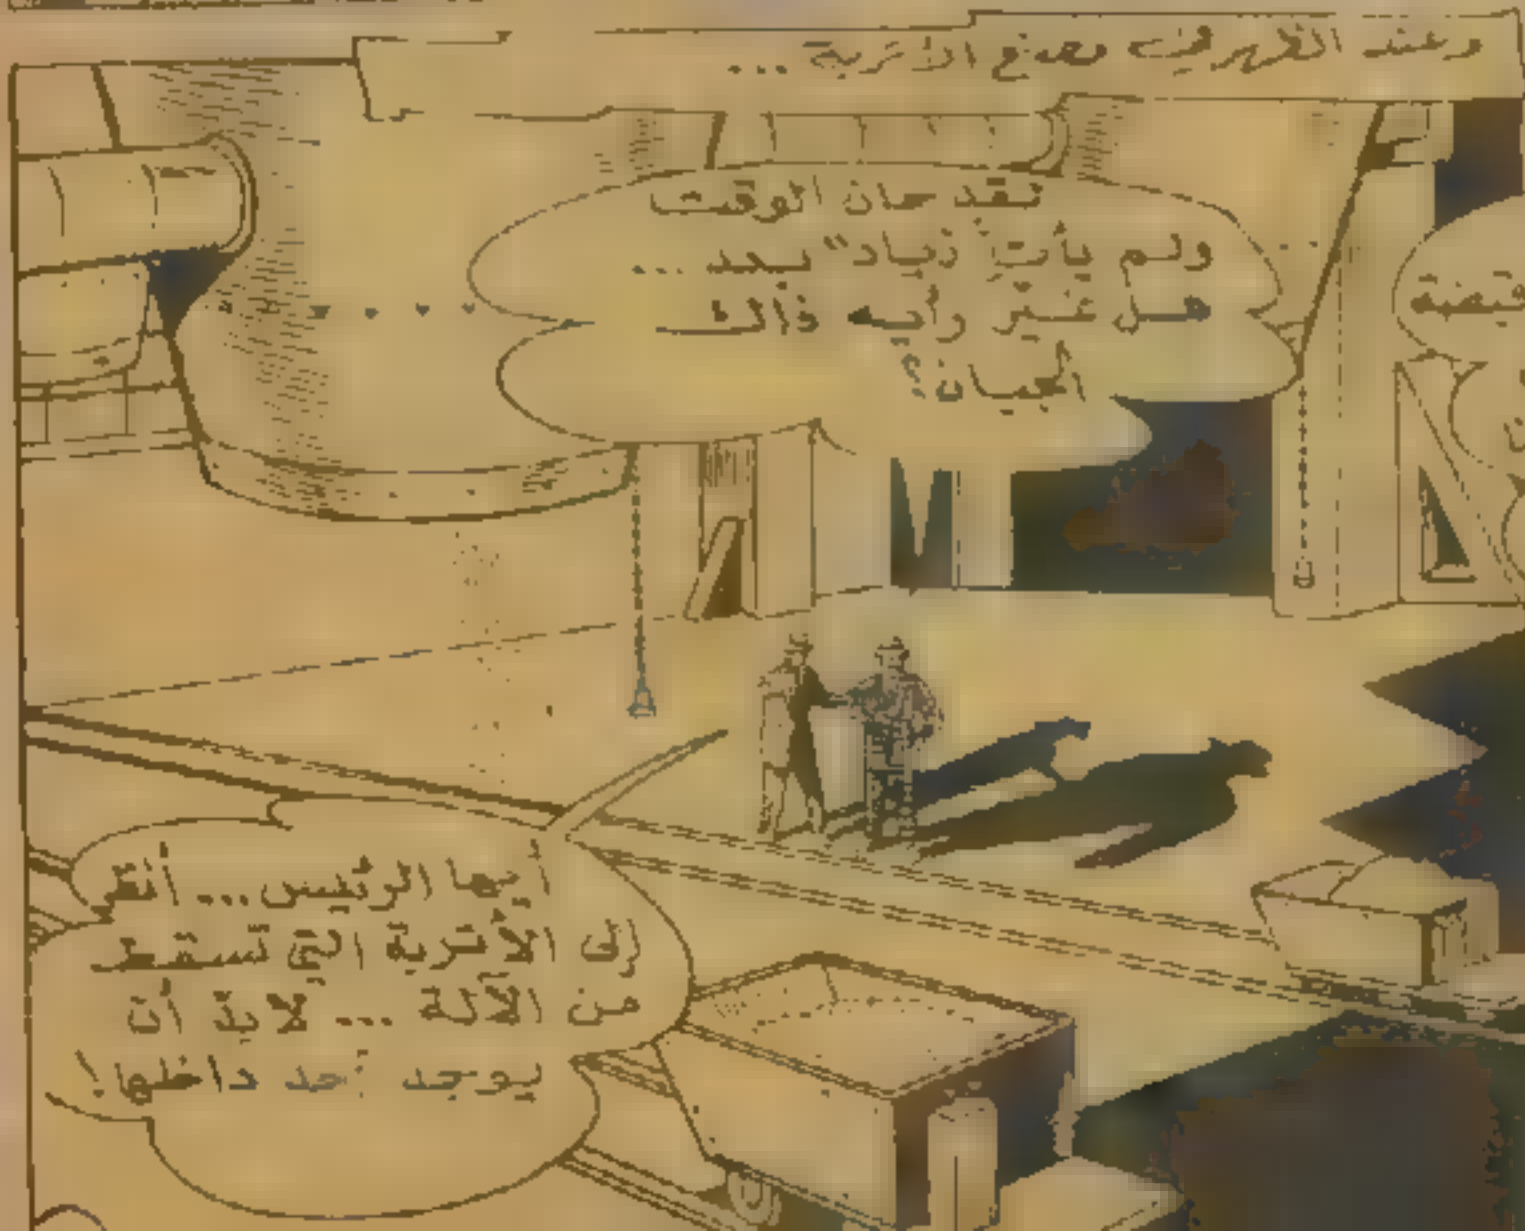 وعند الظهر في مصنع الأتربة ...
لقد حان الوقت
ولم يأتِ "زياد" بعد ...
هل غيّر رأيه ذلك
الجبان؟
قبضة
أيها الرئيس... أنظر
إلى الأتربة التي تسقط
من الآلة ... لابدّ أن
يوجد أحد داخلها!